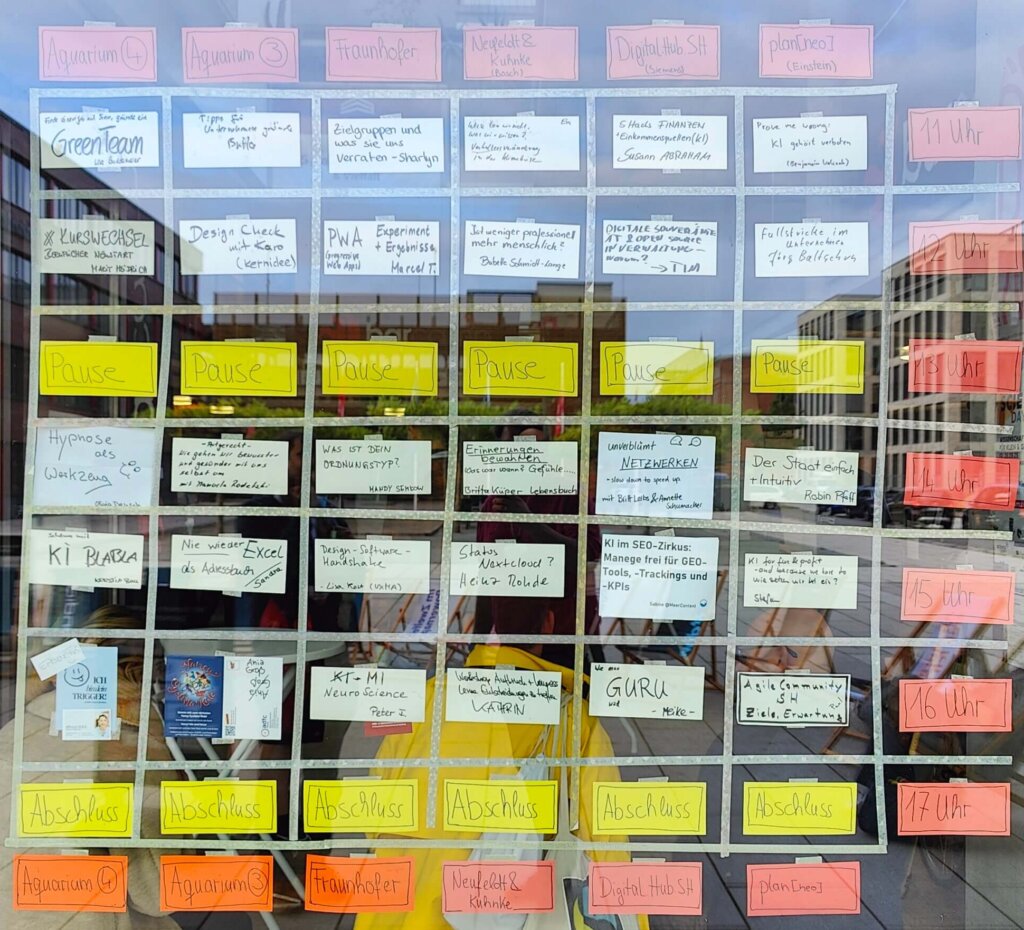 Aquarium 4
Aquarium 3
Fraunhofer
Neufeldt &
Kuhnke
(Bosch)
Digital Hub SH
(Siemens)
plan[neo]
(Einstein)
GreenTeam
Tipps für
Unternehmens
Zielgruppen und
was sie uns
verraten - Sharlyn
was wir wissen?
in der Klimakrise
5 Hacks FINANZEN
Einkommensquellen (KI)
Susann ABRAHAM
Prove me wrong:
KI gehört verboten
(Benjamin
11 Uhr
KURSWECHSEL
BERUFLICHER NEUSTART
Design Check
mit Karo
(Kernidee)
PWA Experiment
+ Ergebnisse
Progressive
Web Apps
Marcel T.
Ist weniger professionell
mehr menschlich?
Babette Schmidt-Lange
DIGITALE SOUVERÄNE
IT & OPEN SOURCE
IN VERWALTUNG -
warum?
→ TIM
Fallstricke im
Unternehmen
Jörg
12 Uhr
Pause
Pause
Pause
Pause
Pause
Pause
13 Uhr
Hypnose
als
Werkzeug
- Artgerecht -
Wie gehen wir bewusster
und gesünder mit uns
selbst um
mit Manuela
WAS IST DEIN
ORDNUNGSTYP?
MANDY
Erinnerungen
bewahren
Was war wann? Gefühle....
Britta Küper Lebensbuch
unverblümt
NETZWERKEN
- slow down to speed up
mit Britt Lorbs & Annette
Schumacher
Der Staat einfach
+ Intuitiv
Robin Pfaff
14 Uhr
KI BLABLA
Nie wieder Excel
als Adressbuch
Sandra
Design-Software-
Handshake
- Lisa
Status
Nextcloud?
Heinz Rohde
KI im SEO-Zirkus:
Manege frei für GEO-
Tools, -Trackings und
-KPIs
Sabine @MeerContent
KI for fun & profit
- and because we have to
wie setzen wir KI ein?
Stefan
15 Uhr
ICH
TRIGGER!
Ania
KI + MI
NeuroScience
Peter J.
KATHRIN
We man
GURU
ward
- Meike -
Agile Community
SH
Ziele, Erwartung
16 Uhr
Abschluss
Abschluss
Abschluss
Abschluss
Abschluss
Abschluss
17 Uhr
Aquarium 4
Aquarium 3
Fraunhofer
Neufeldt &
Kuhnke
Digital Hub SH
plan[neo]